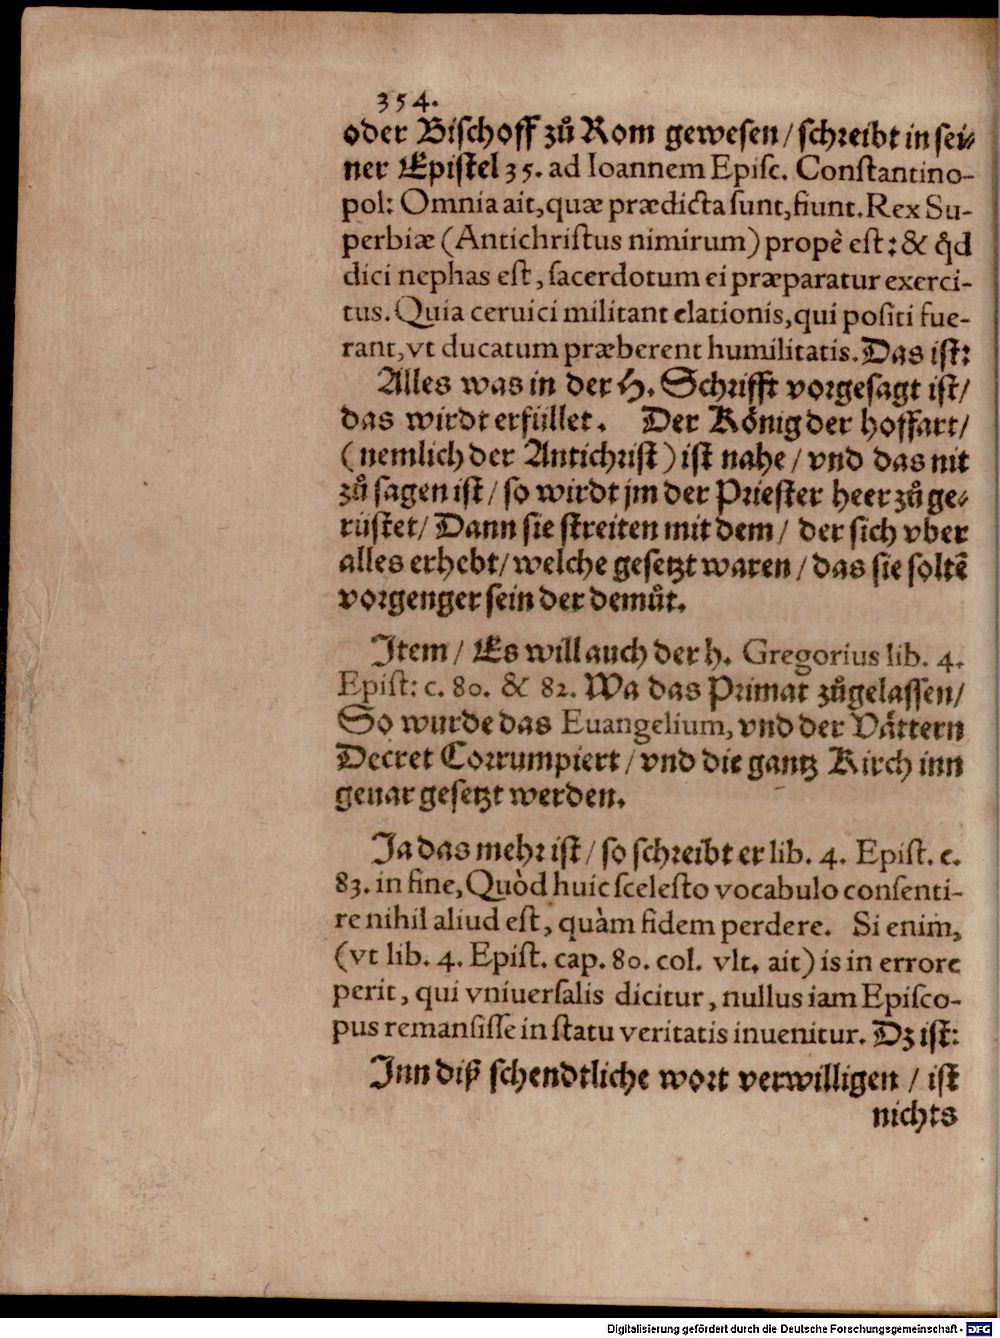 354.
oder Bischoff zů Rom gewesen / schreibt in sei⸗
ner Epistel 35. ad Ioannem Episc. Constantino-
pol: Omnia ait, quæ prædicta sunt, fiunt. Rex Su-
perbiæ (Antichristus nimirum) propè est: & q̃d
dici nephas est, sacerdotum ei præparatur exerci-
tus. Quia ceruici militant elationis, qui positi fue-
rant, vt ducatum præberent humilitatis. Das ist:
Alles was in der H. Schrifft vorgesagt ist/
das wirdt erfüllet. Der König der hoffart/
(nemlich der Antichrist) ist nahe / vnd das nit
zů sagen ist / so wirdt jm der Priester heer zů ge⸗
rüstet / Dann sie streiten mit dem / der sich vber
alles erhebt / welche gesetzt waren / das sie soltẽ
vorgenger sein der demůt.
Item / Es will auch der h. Gregorius lib. 4.
Epist: c. 80. & 82. Wa das Primat zůgelassen/
So wurde das Euangelium, vnd der Vättern
Decret Corrumpiert / vnd die gantz Kirch inn
geuar gesetzt werden.
Ja das mehr ist / so schreibt er lib. 4. Epist. c.
83. in fine, Quòd huic scelesto vocabulo consenti-
re nihil aliud est, quàm fidem perdere. Si enim,
(vt lib. 4. Epist. cap. 80. col. vlt. ait) is in errore
perit, qui vniuersalis dicitur, nullus iam Episco-
pus remansisse in statu veritatis inuenitur. Dz ist:
Inn diß schendtliche wort verwilligen / ist
nichts
Digitalisierung gefördert durch die Deutsche Forschungsgemeinschaft - DFG